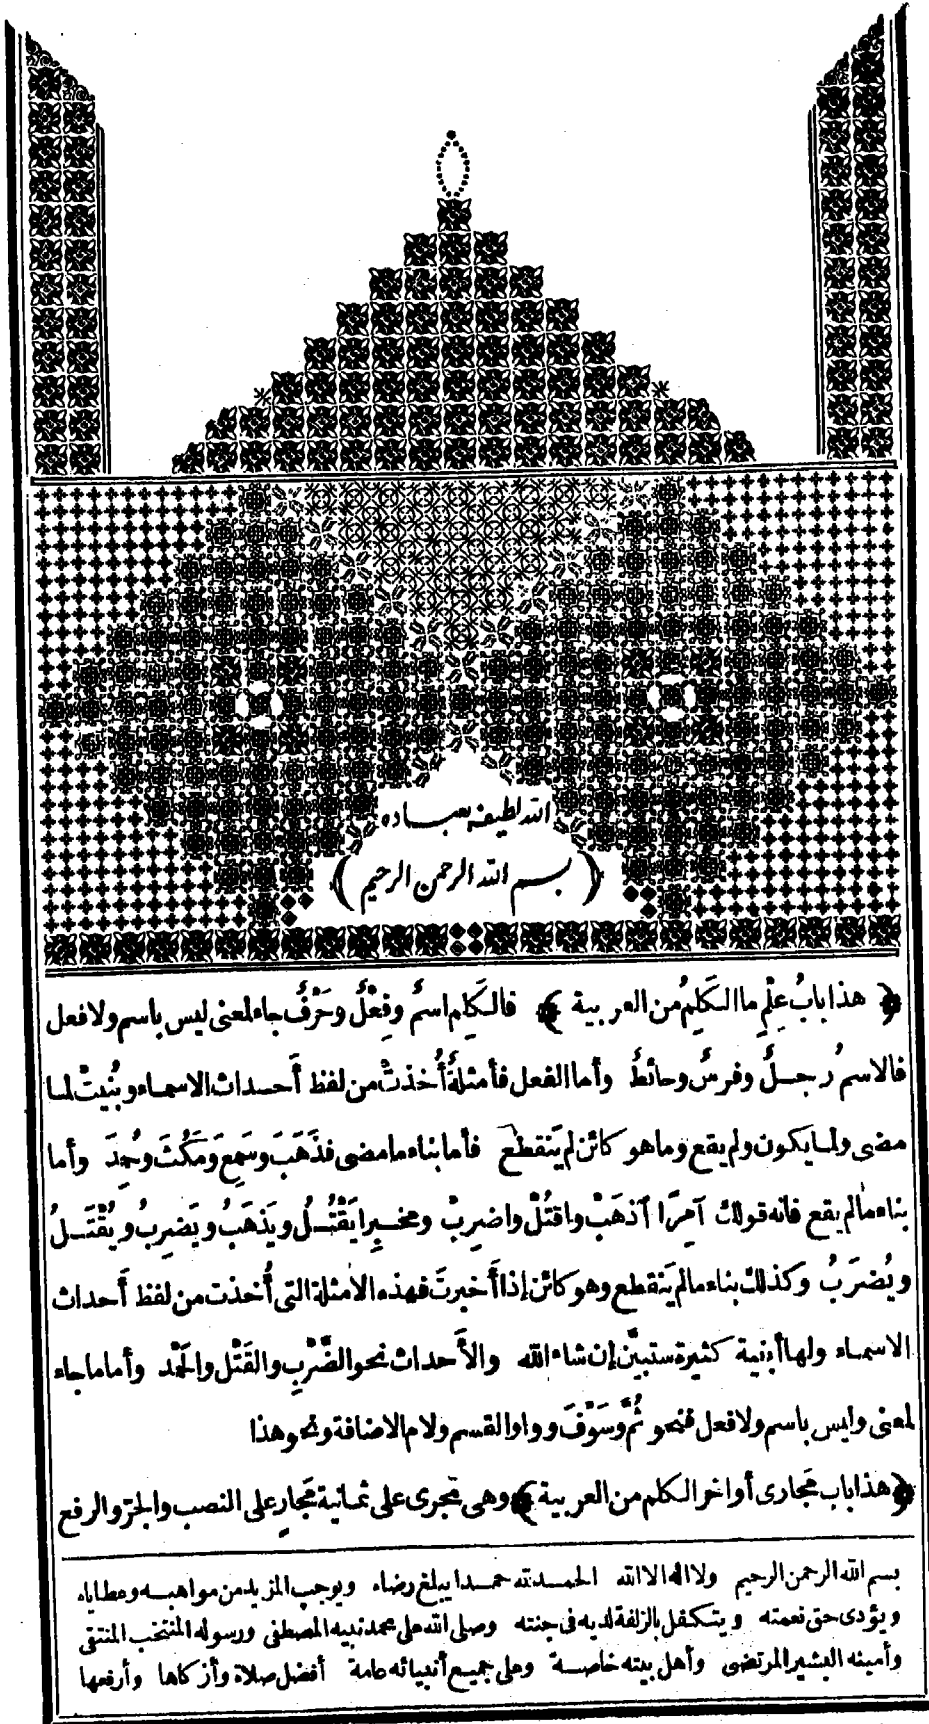 الله لطيف بعباده
﴿ بسم الله الرحمن الرحيم ﴾
﴿ هذا بابُ عِلْمِ ما الكَلِمُ من العربية ﴾ فالكَلِم اسمٌ وفِعْلٌ وحَرْفٌ جاء لمعنى ليس باسم ولا فعل
فالاسمُ رجلٌ وفرسٌ وحائطٌ وأما الفعل فأمثلةٌ أُخذتْ من لفظ أَحداث الاسماء وبُنيتْ لما
مضى ولما يكون ولم يقع وما هو كائن لم يَنقطع فأما بناء ما مضى فذَهَبَ وسَمِعَ ومَكُثَ وحُمِدَ وأما
بناء ما لم يقع فانه قولك آمِرًا آذهَبْ واقتُلْ واضرِبْ ومخبِرا يَقْتُلُ ويَذهَبُ ويَضرِبُ ويُقْتَلُ
ويُضرَبُ وكذلك بناء ما لم يَنقطع وهو كائن إذا أَخبرتَ فهذه الامثلة التى أُخذت من لفظ أَحداث
الاسماء ولها أبنية كثيرة ستبيَّن إن شاء الله والأَحداث نحو الضَّرْبِ والقَتْل والحَمْد وأما ما جاء
لمعنى وليس باسم ولا فعل فنحو ثُمَّ وسَوْفَ وواو القسم ولام الاضافة ونحو هذا
﴿ هذا باب مَجارى أواخر الكلم من العربية ﴾ وهى تجرى على ثمانية مَجارٍ على النصب والجرّ والرفع
بسم الله الرحمن الرحيم ولا اله الا الله الحمد لله حمدا يبلغ رضاه ويوجب المزيد من مواهبه وعطاياه
ويؤدى حق نعمته ويتكفل بالزلفة لديه فى جنته وصلى الله على محمد نبيه المصطفى ورسوله المنتخب المنتقى
وأمينه البشير المرتضى وأهل بيته خاصة وعلى جميع أنبيائه عامة أفضل صلاة وأزكاها وأرفعها